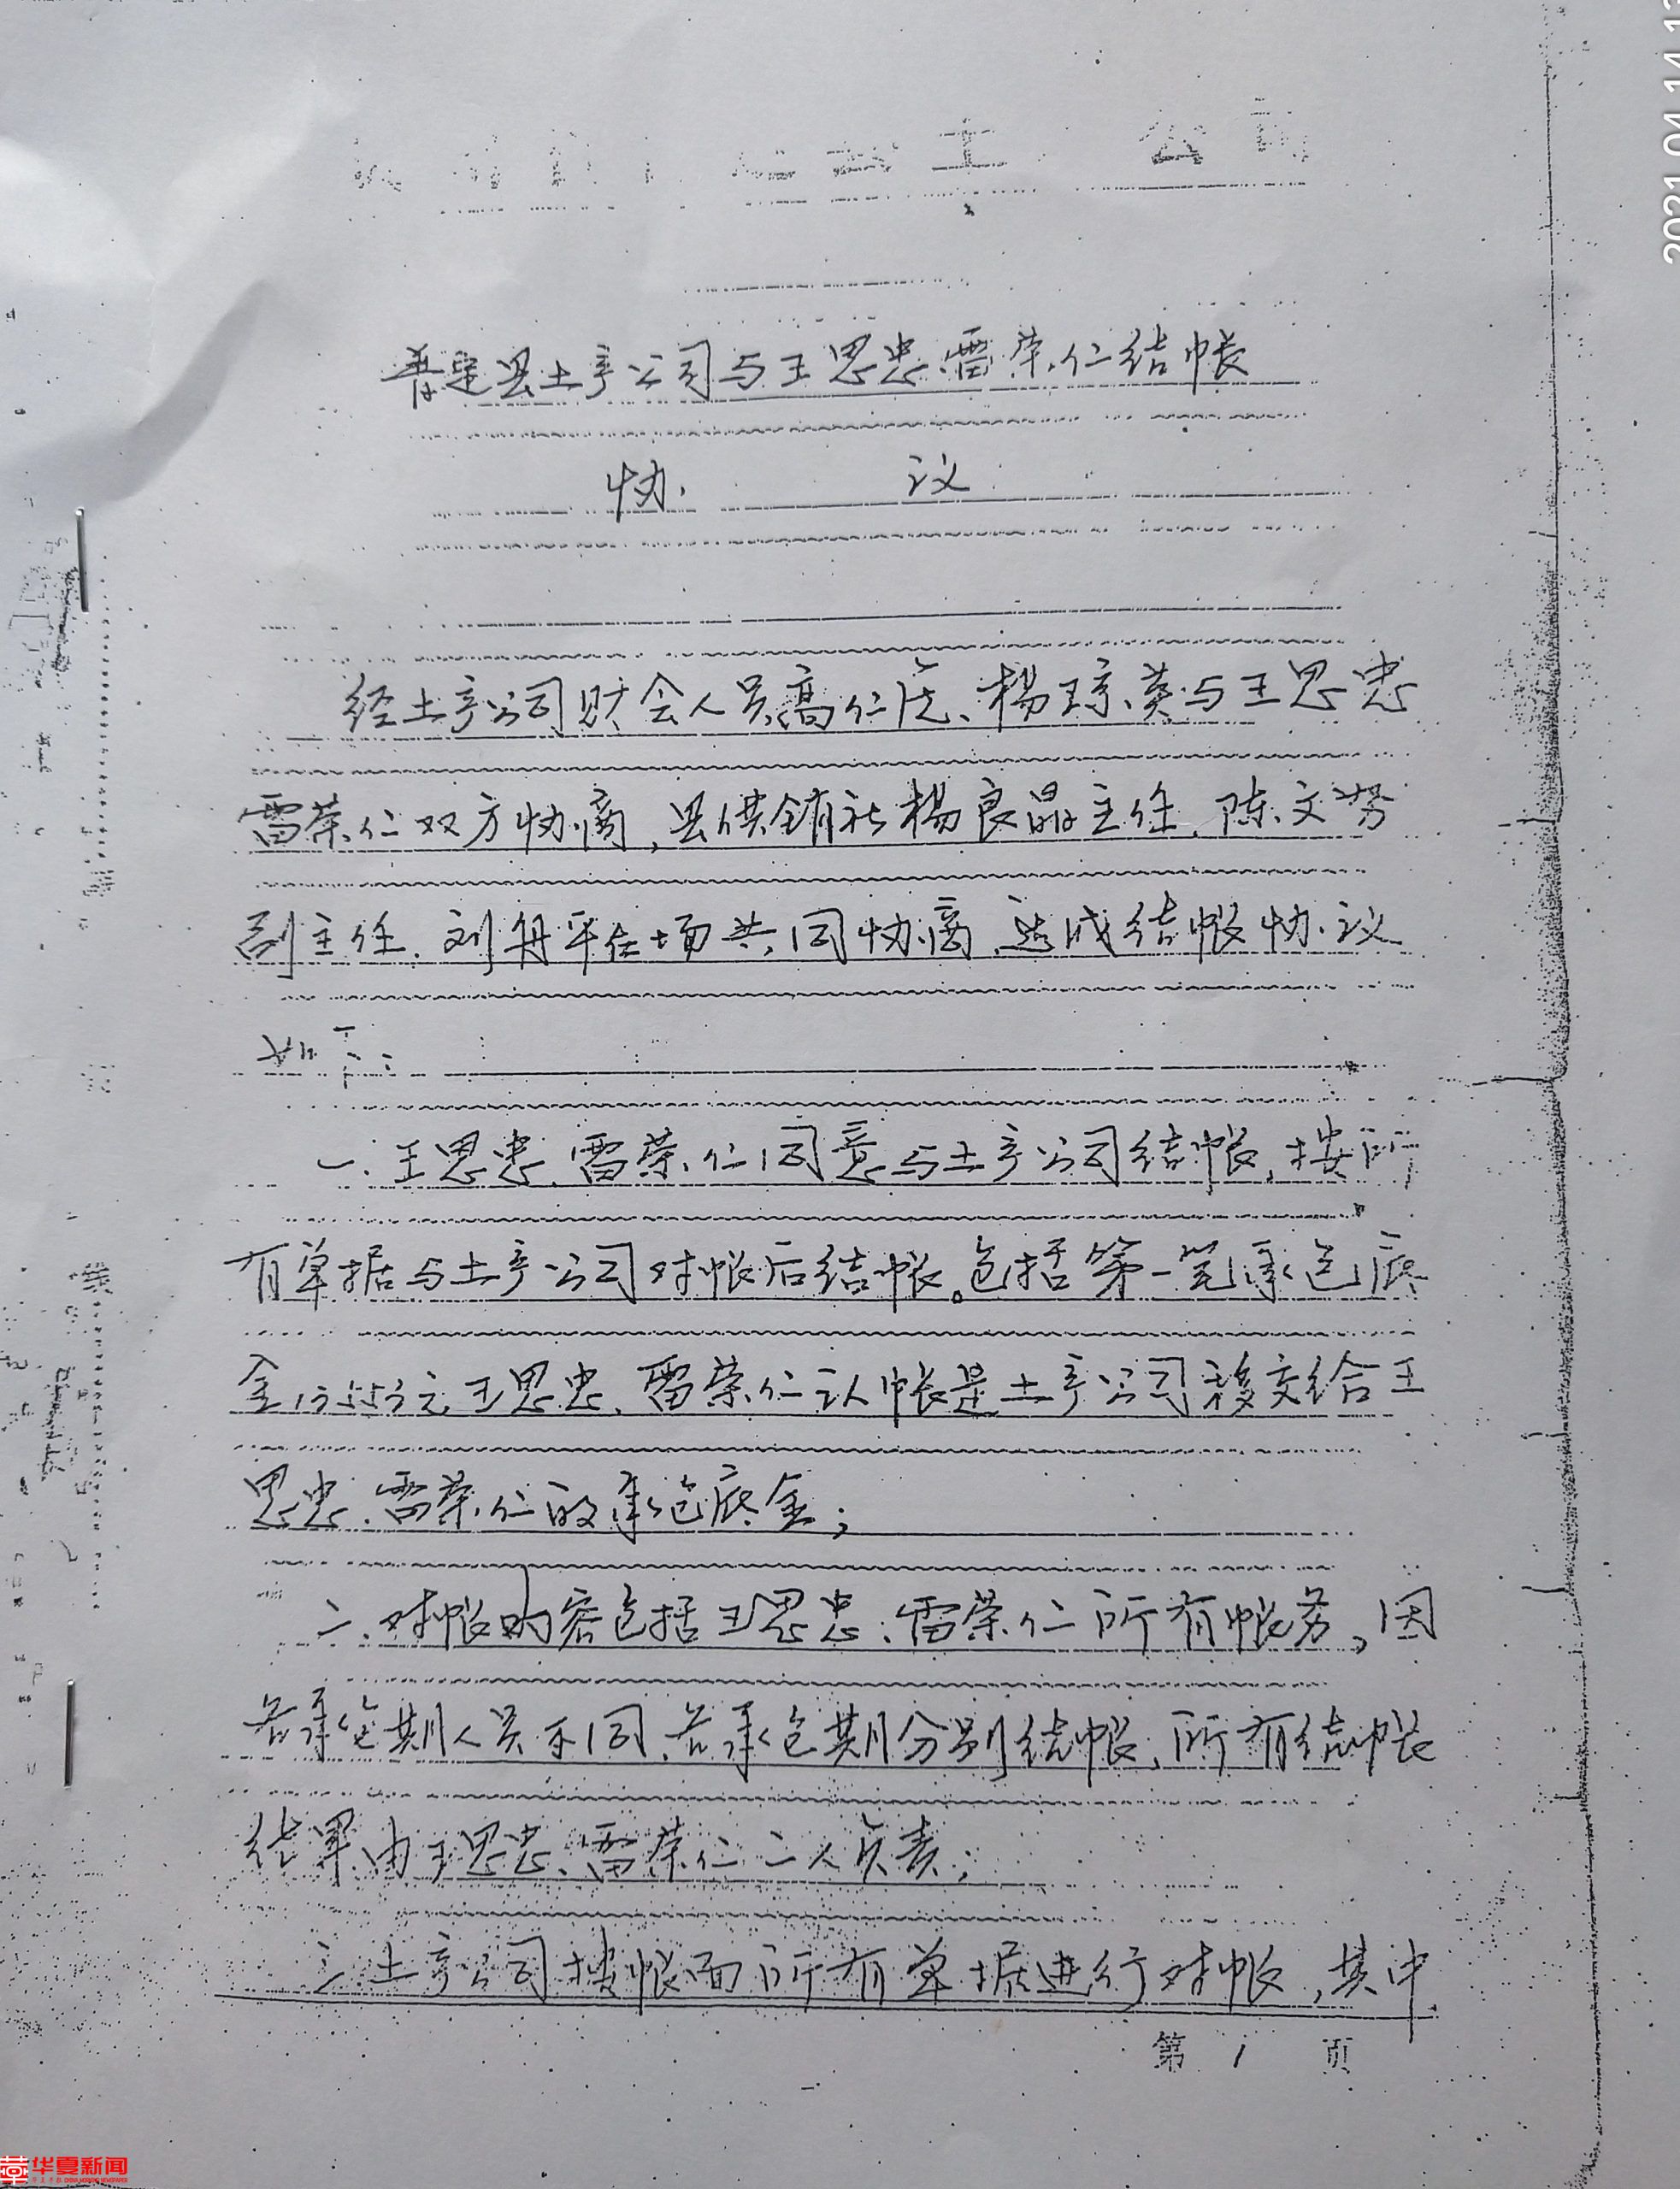 土 公司
普定县土产公司与王思忠、雷荣仁结帐
协 议
经土产公司财会人员高仁虎、杨琼英与王思忠
雷荣仁双方协商,县供销社杨良晶主任、陈文
副主任、刘丹平在场共同协商,达成结帐协议
如下:
一、王思忠、雷荣仁同意与土产公司结帐,按所
有单据与土产公司对帐后结帐。包括第一笔承包底
金 元,王思忠、雷荣仁认帐是土产公司移交给王
思忠、雷荣仁的承包底金;
二、对帐内容包括王思忠、雷荣仁所有帐务,因
各承包期人员不同,各承包期分别结帐,所有结帐
结果由王思忠、雷荣仁二人负责;
三、土产公司按帐面所有单据进行对帐,其中
第 1 页
2021.04.14 1
华夏新闻